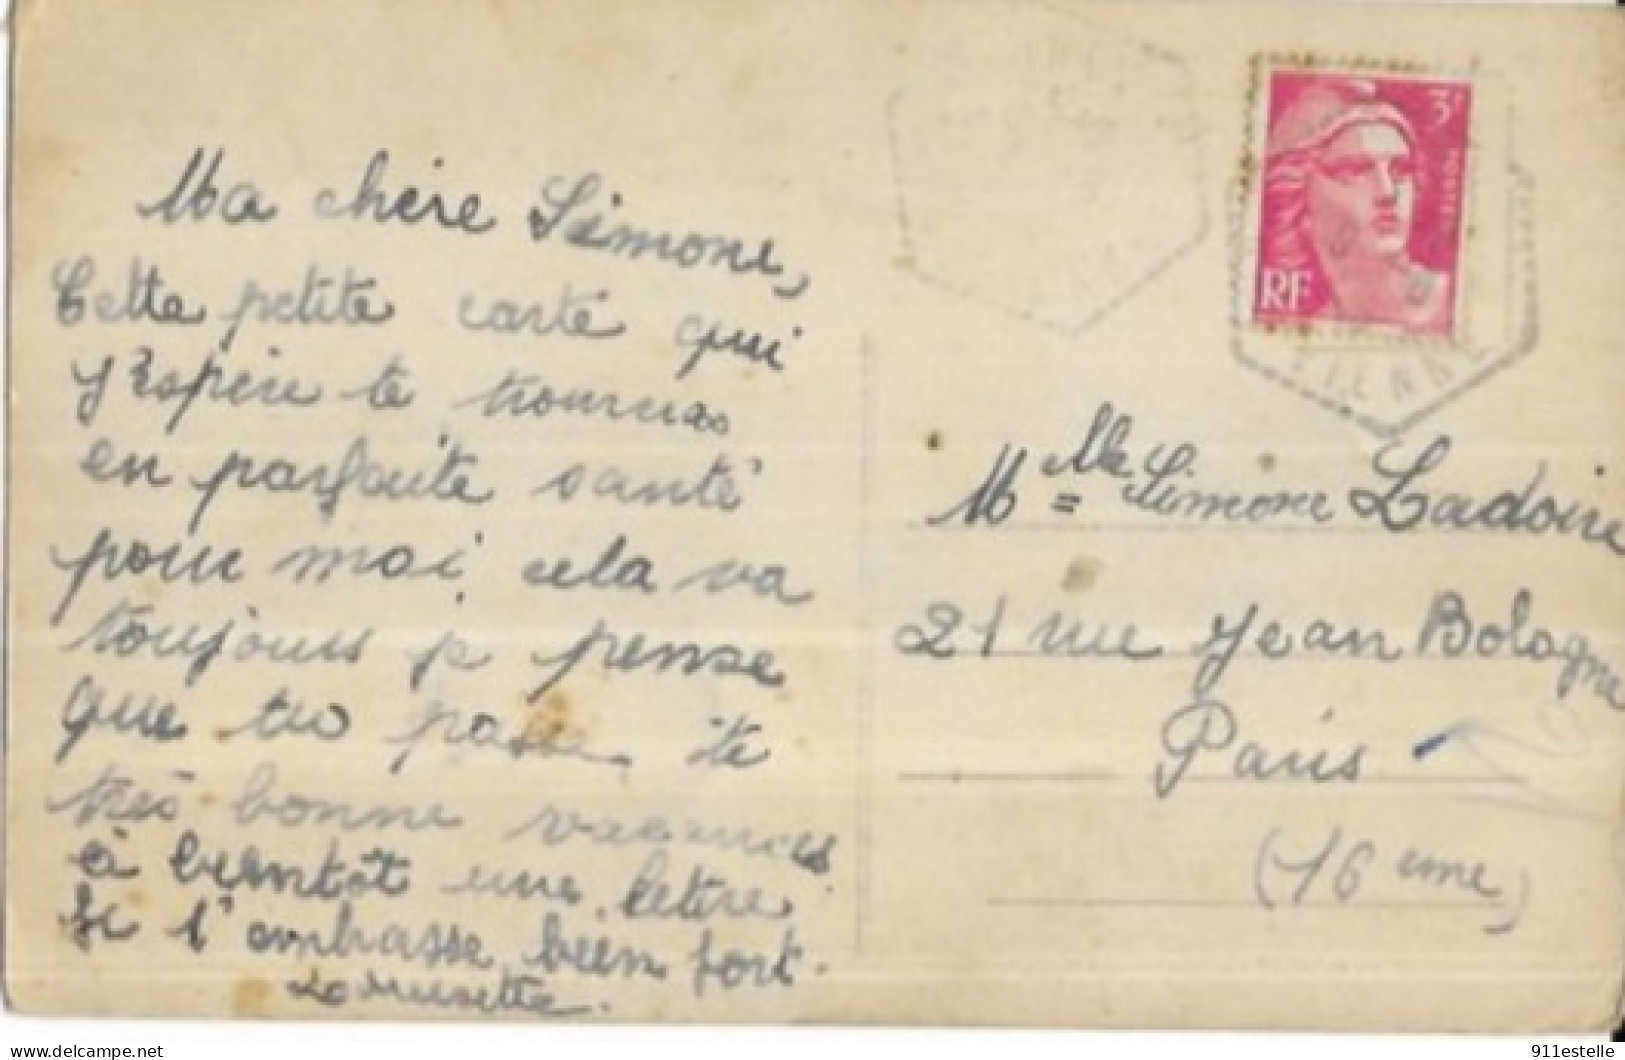 Ma chère Simone,
Cette petite carte qui
j'espère te trouveras
en parfaite santé
pour moi, cela va
toujours je pense
que tu passe de
très bonne vacances
à bientôt une lettre
Je t'embrasse bien fort.
3F
POSTES
RF
VIENNE
Melle Simone Ladoire
21 rue Jean Bologne
Paris
(16 eme)
911estelle @ delcampe.net